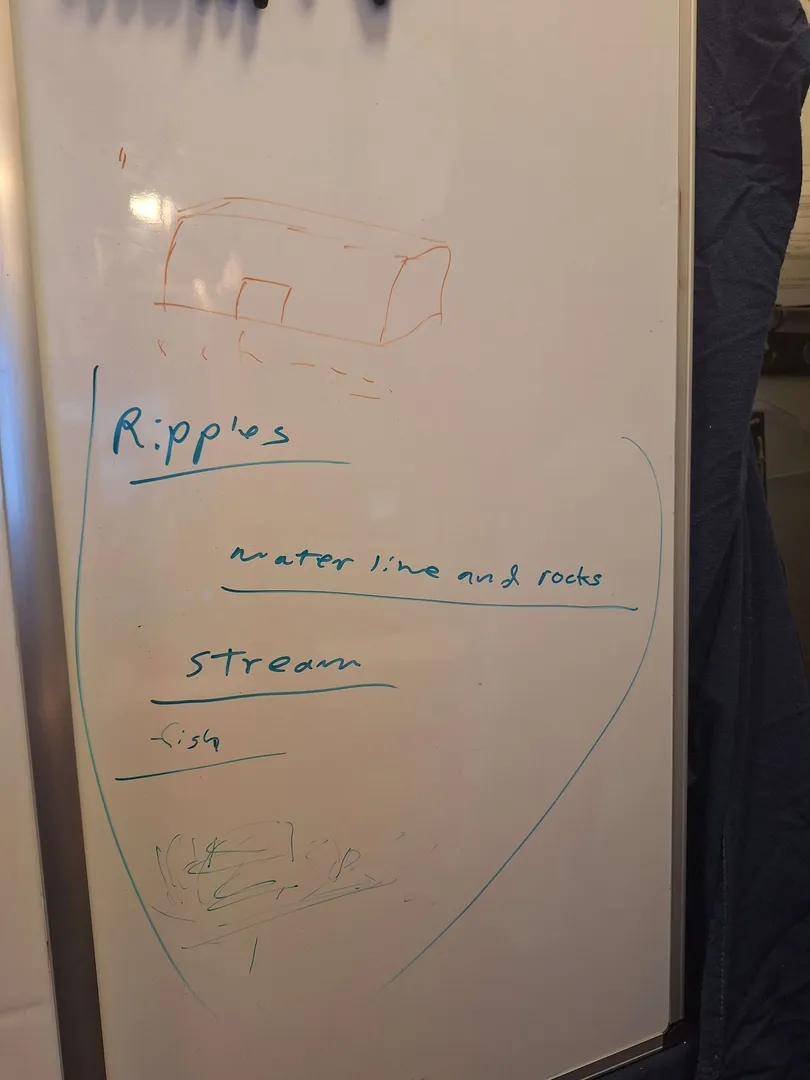 Ripples
water line and rocks
stream
fish